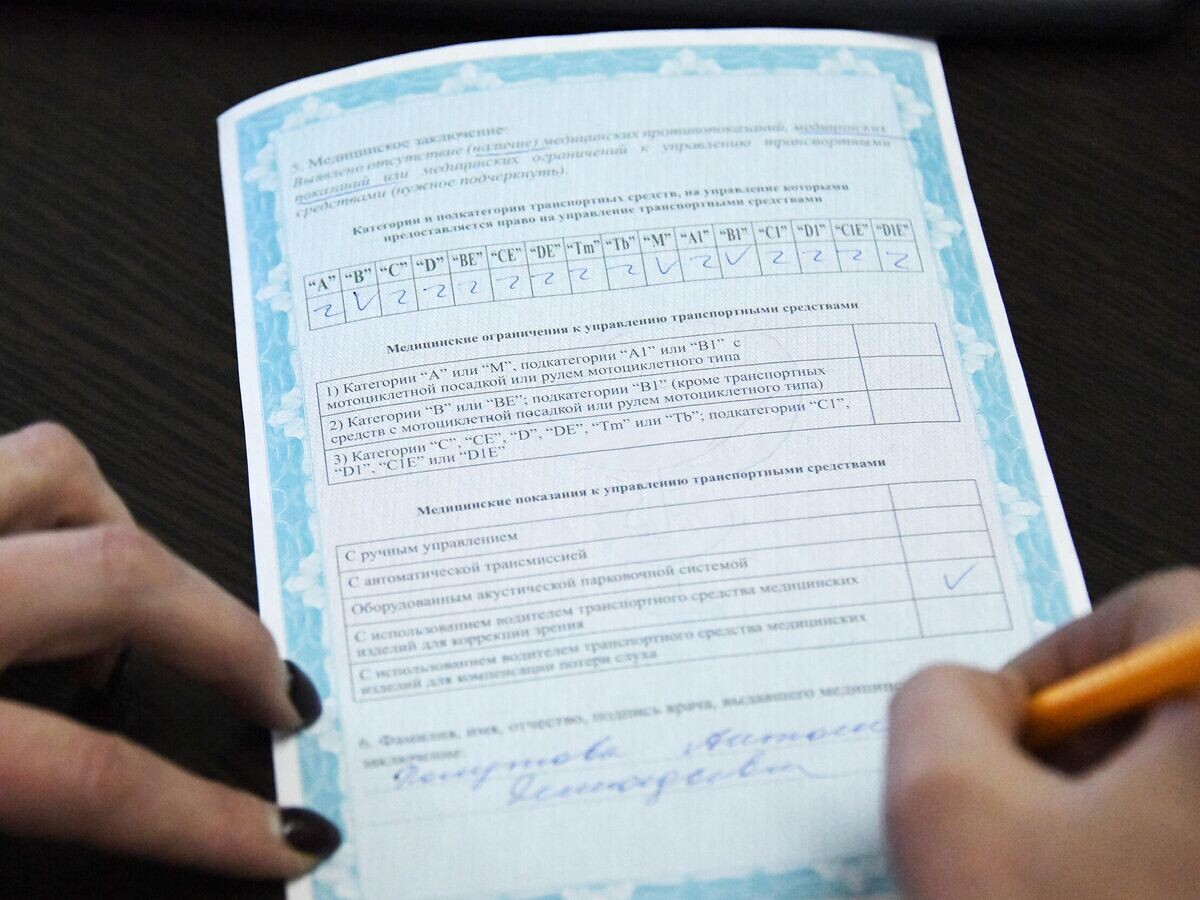 5. Медицинское заключение:
Выявлено отсутствие (наличие) медицинских противопоказаний, медицинских
показаний или медицинских ограничений к управлению транспортными
средствами (нужное подчеркнуть).
Категории и подкатегории транспортных средств, на управление которыми
предоставляется право на управление транспортными средствами
“A” “B” “C” “D” “BE” “CE” “DE” “Tm” “Tb” “M” “A1” “B1” “C1” “D1” “C1E” “D1E”
Z V Z Z Z Z Z Z Z V Z V Z Z Z Z
Медицинские ограничения к управлению транспортными средствами
1) Категории “A” или “M”, подкатегории “A1” или “B1” с
мотоциклетной посадкой или рулем мотоциклетного типа
2) Категории “B” или “BE”; подкатегории “B1” (кроме транспортных
средств с мотоциклетной посадкой или рулем мотоциклетного типа)
3) Категории “C”, “CE”, “D”, “DE”, “Tm” или “Tb”; подкатегории “C1”,
“D1”, “C1E” или “D1E”
Медицинские показания к управлению транспортными средствами
С ручным управлением
С автоматической трансмиссией
Оборудованным акустической парковочной системой
С использованием водителем транспортного средства медицинских
изделий для коррекции зрения
С использованием водителем транспортного средства медицинских
изделий для компенсации потери слуха
6. Фамилия, имя, отчество, подпись врача, выдавшего
заключение: